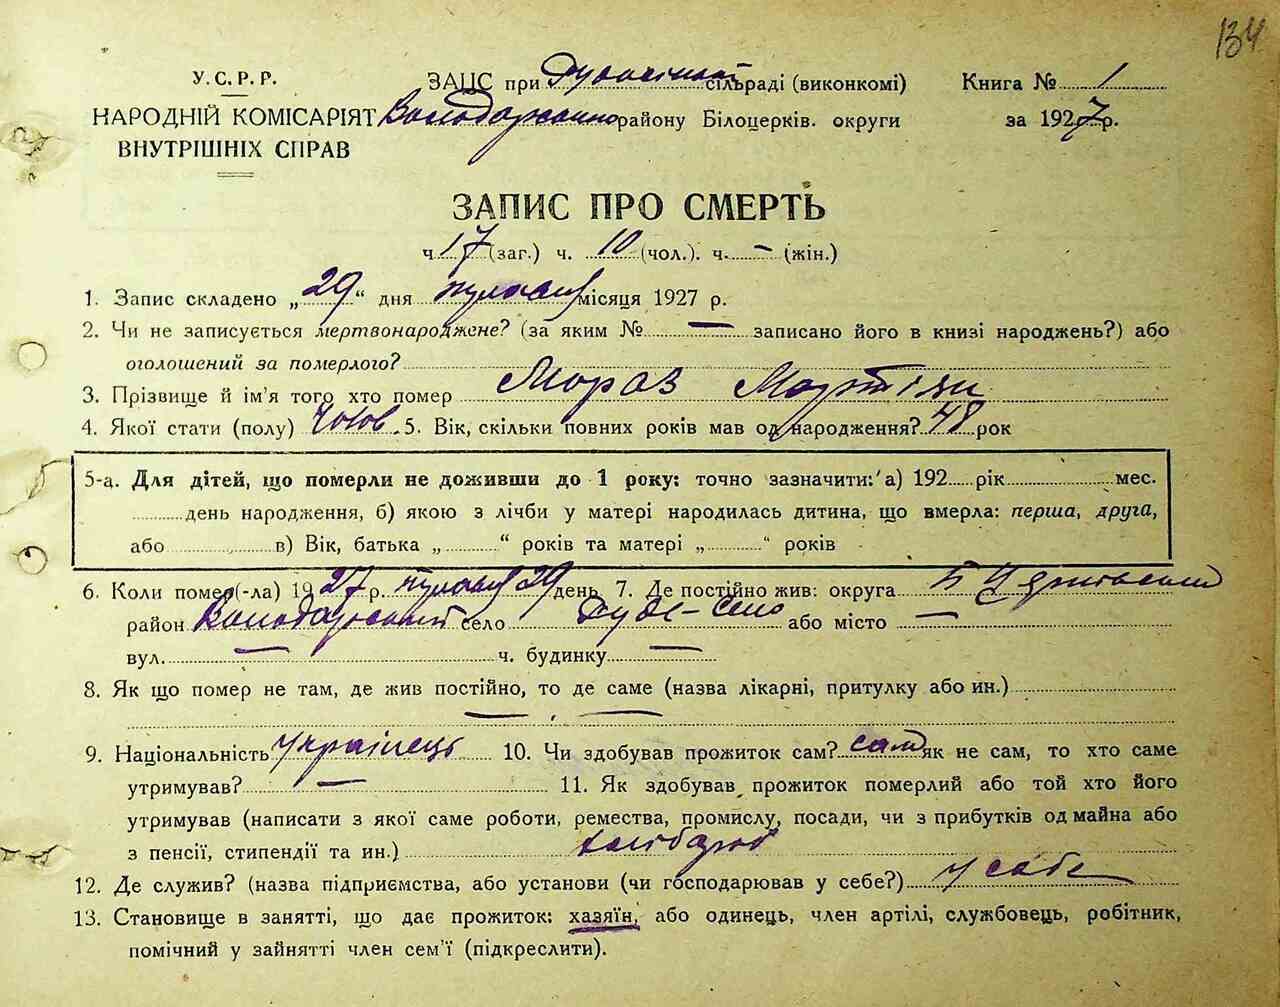 134
У.С.Р.Р. ЗАЦС при сільраді (виконкомі) Книга № 1
НАРОДНІЙ КОМІСАРІЯТ району Білоцерків. округи за 1927 р.
ВНУТРІШНІХ СПРАВ
ЗАПИС ПРО СМЕРТЬ
ч 17 (заг.) ч. 10 (чол.). ч. – (жін.)
1. Запис складено „29“ дня місяця 1927 р.
2. Чи не записується мертвонароджене? (за яким № — записано його в книзі народжень?) або
оголошений за померлого?
3. Прізвище й ім'я того хто помер Мороз
4. Якої стати (полу) чолов. 5. Вік, скільки повних років мав од народження? 48 рок
5-а. Для дітей, що померли не доживши до 1 року: точно зазначити: а) 192 рік мес.
день народження, б) якою з лічби у матері народилась дитина, що вмерла: перша, друга,
або в) Вік, батька „ “ років та матері „ “ років
6. Коли помер (-ла) 1927 р. 29 день 7. Де постійно жив: округа Б Церківський
район Володарський село або місто —
вул. — ч. будинку —
8. Як що помер не там, де жив постійно, то де саме (назва лікарні, притулку або ин.)
— —
9. Національність українець 10. Чи здобував прожиток сам? сам як не сам, то хто саме
утримував? — 11. Як здобував прожиток померлий або той хто його
утримував (написати з якої саме роботи, ремества, промислу, посади, чи з прибутків од майна або
з пенсії, стипендії та ин.) хлібороб
12. Де служив? (назва підприємства, або установи (чи господарював у себе?) у себе
13. Становище в занятті, що дає прожиток: хазяїн, або одинець, член артілі, службовець, робітник,
помічний у зайнятті член сем'ї (підкреслити).